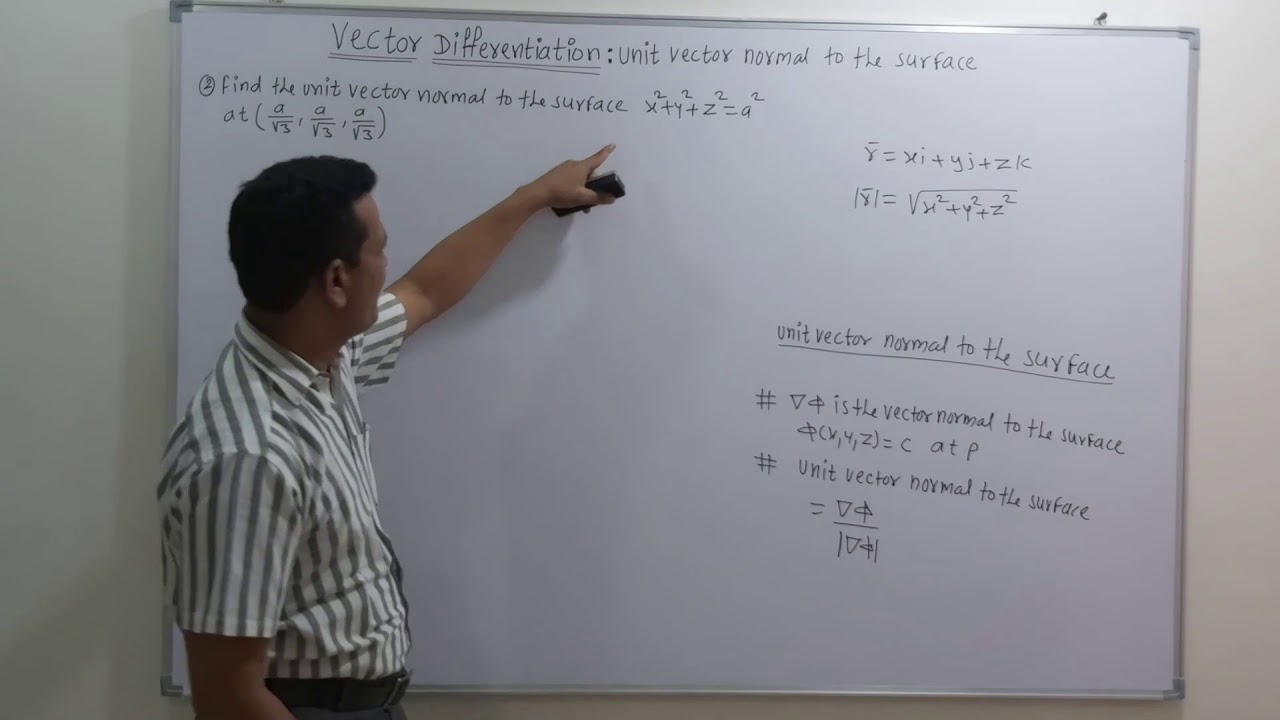 Vector Differentiation: unit vector normal to the surface
② Find the unit vector normal to the surface x²+y²+z²=a²
at (a/√3, a/√3, a/√3)
r̄ = xi + yj + zk
|r̄| = √x²+y²+z²
unit vector normal to the surface
# ∇Φ is the vector normal to the surface
Φ(x,y,z)=c at p
# unit vector normal to the surface
= ∇Φ/|∇Φ|